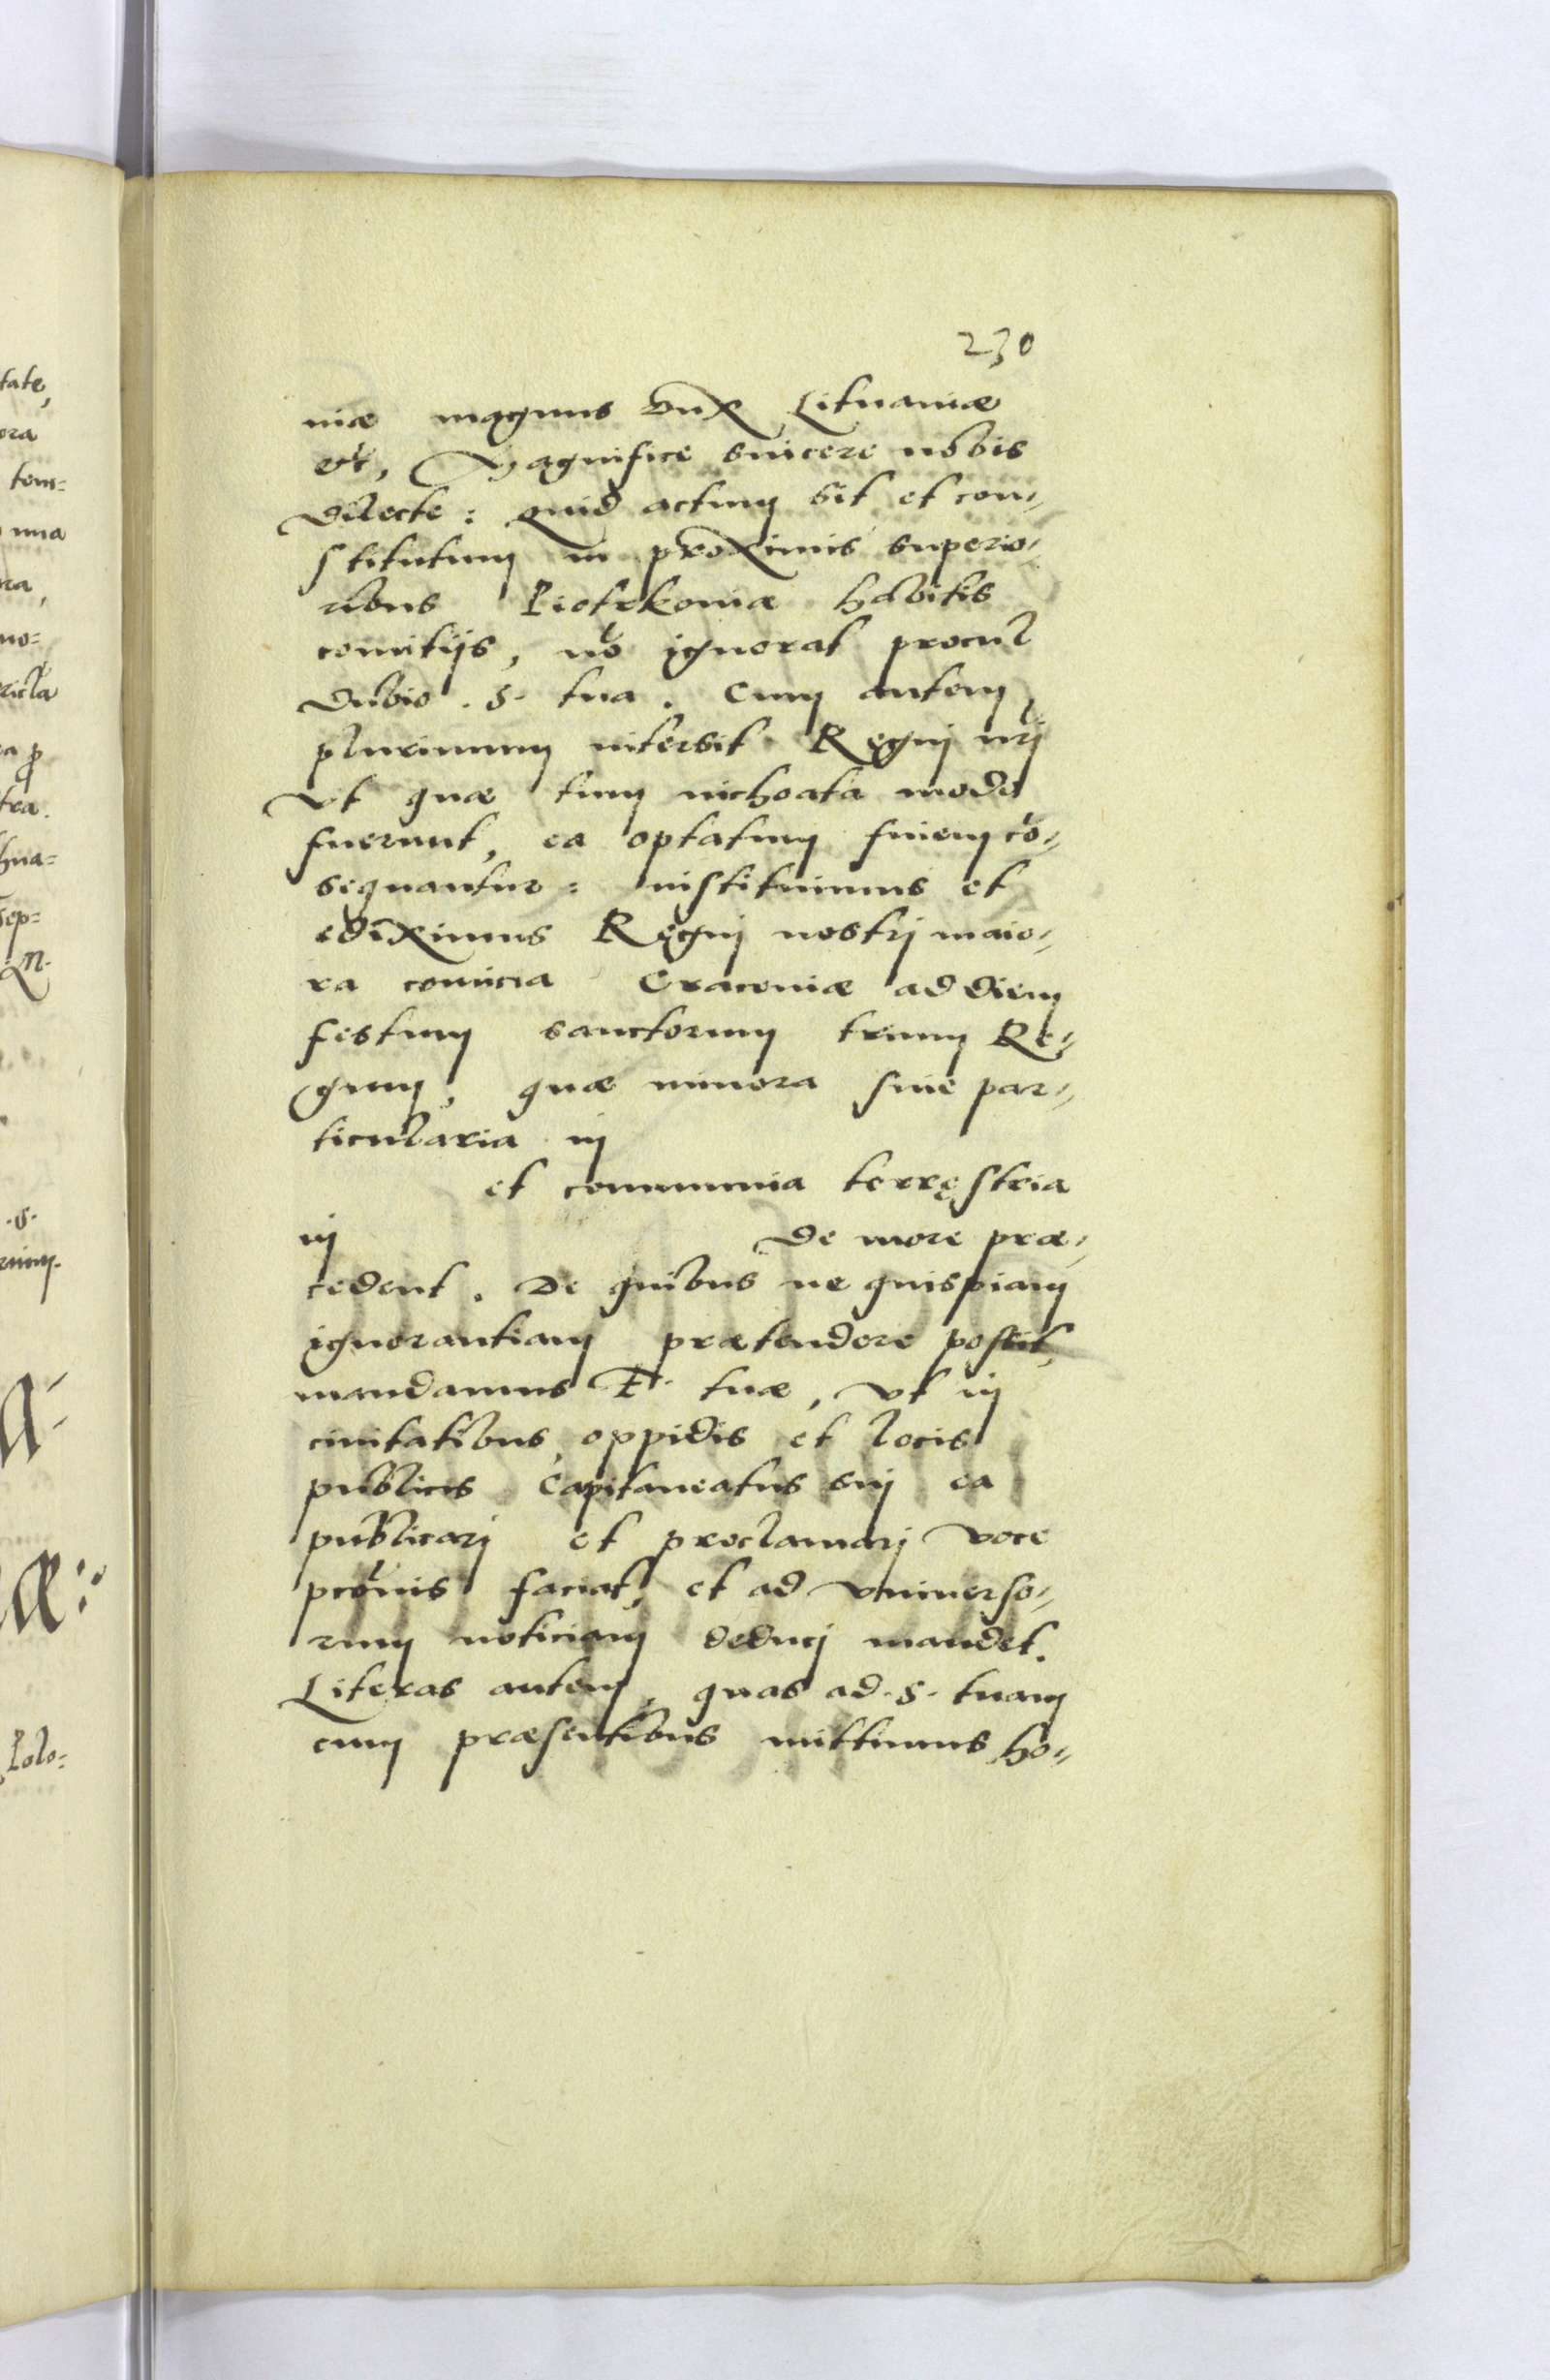 230
niæ magnus Dux Lituaniæ
etc, Magnifice sincere nobis
dilecte: quid actum sit et con-
stitutum in proximis superio-
ribus Piotrkoniæ habitis
comitijs, nō ignorat procul
dubio .S. tua. Cum autem
plurimum intersit Regni nrj
vt quæ tum inchoata modo
fuerunt, ea optatum finem cō-
sequantur: instituimus et
ediximus Regnj nostrj maio-
ra comicia Cracouiæ ad diem
festum sanctorum trium Re-
gum, quæ minora siue par-
ticularia in
et communia terrestria
in de more præ-
cedent. De quibus ne quispiam
ignorantiam prætendere possit,
mandamus F. tuæ, vt in
ciuitatibus, oppidis et locis
publicis Capitaneatus suj ea
publicarj et proclamarj voce
pcōnis faciat, et ad vniuerso-
rum noticiam deducj mandet.
Literas autem, quas ad .S. tuam
cum præsentibus mittimus ho-
tate,
ora
tem=
una
ra,
no=
ricla
ra p
tra.
hua=
sep=
M.
.S.
rimum.
a-
æ:
Polo=